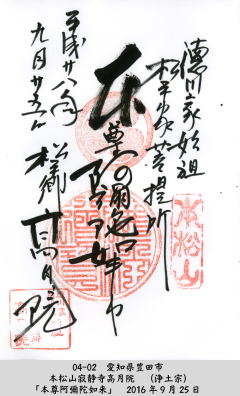 徳川家始祖
松平家菩提所
本尊
阿弥陀如来
平成廿八年
九月廿五日
松平郷
高月院
本松山
04-02 愛知県豊田市
本松山寂静寺高月院 (浄土宗)
「本尊阿彌陀如来」 2016年9月25日